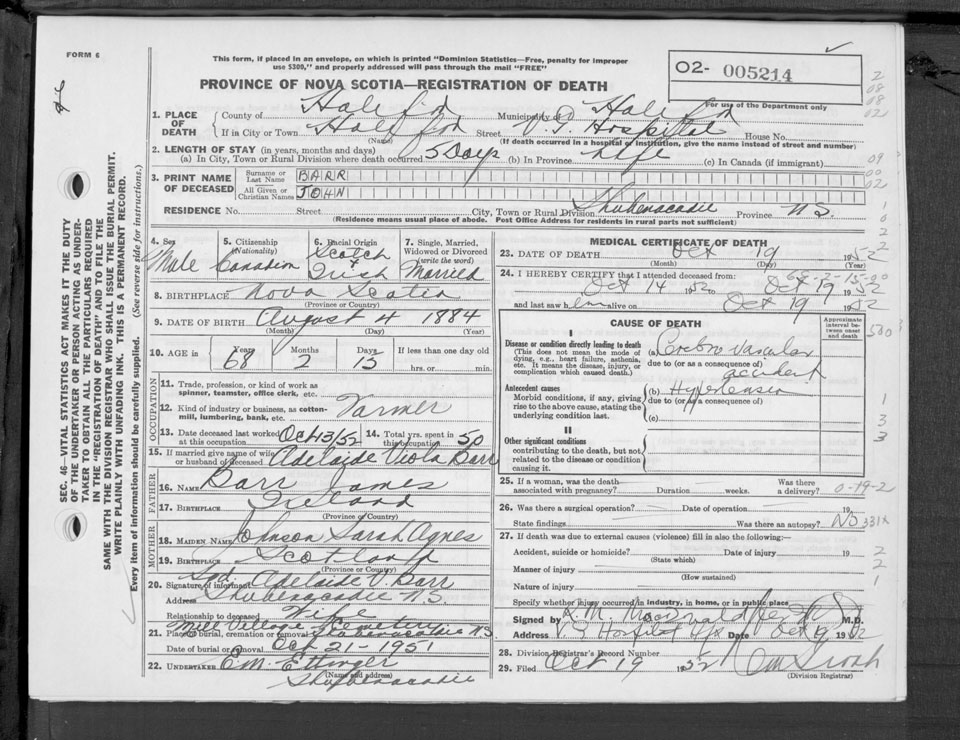 FORM 6
This form, if placed in an envelope, on which is printed "Dominion Statistics—Free, penalty for improper
use $300," and properly addressed will pass through the mail "FREE"
O2- 005214
PROVINCE OF NOVA SCOTIA—REGISTRATION OF DEATH
For use of the Department only
1. PLACE OF DEATH
County of Halifax Municipality of Halifax
If in City or Town Halifax Street V.G. Hospital House No.
(Name) (If death occurred in a hospital or institution, give the name instead of street and number)
2. LENGTH OF STAY (in years, months and days)
(a) In City, Town or Rural Division where death occurred 5 Days (b) In Province Life (c) In Canada (if immigrant)
3. PRINT NAME OF DECEASED
Surname or Last Name BARR
All Given or Christian Names JOHN
RESIDENCE No. Street City, Town or Rural Division Shubenacadie Province N.S.
(Residence means usual place of abode. Post Office Address for residents in rural parts not sufficient)
4. Sex Male
5. Citizenship (Nationality) Canadian
6. Racial Origin Scotch & Irish
7. Single, Married, Widowed or Divorced (write the word) Married
8. BIRTHPLACE Nova Scotia
(Province or Country)
9. DATE OF BIRTH August 4 1884
(Month) (Day) (Year)
10. AGE in Years 68 Months 2 Days 15 If less than one day old hrs. or min.
OCCUPATION
11. Trade, profession, or kind of work as spinner, teamster, office clerk, etc.
12. Kind of industry or business, as cotton-mill, lumbering, bank, etc. Farmer
13. Date deceased last worked at this occupation Oct 13/52 14. Total yrs. spent in this occupation 50
15. If married give name of wife or husband of deceased Adelaide Viola Barr
FATHER
16. NAME Barr James
17. BIRTHPLACE Ireland
(Province or Country)
MOTHER
18. MAIDEN NAME Johnson Sarah Agnes
19. BIRTHPLACE Scotland
(Province or Country)
20. Signature of informant Sgd. Adelaide V. Barr
Address Shubenacadie N.S.
Relationship to deceased Wife
Mill Village Cemetery
21. Place of burial, cremation or removal Shubenacadie N.S
Date of burial or removal Oct 21-1951
22. UNDERTAKER E M. Ettinger
(Name and address)
Shubenacadie
MEDICAL CERTIFICATE OF DEATH
23. DATE OF DEATH Oct 19 1952
(Month) (Day) (Year)
24. I HEREBY CERTIFY that I attended deceased from:
Oct 14 1952 to Oct 19 1952
and last saw him alive on Oct 19 1952
CAUSE OF DEATH
Approximate interval between onset and death
I
Disease or condition directly leading to death
(This does not mean the mode of dying, e.g., heart failure, asthenia, etc. It means the disease, injury, or complication which caused death.)
(a) Cerebro Vascular accident
due to (or as a consequence of)
Antecedent causes
Morbid conditions, if any, giving rise to the above cause, stating the underlying condition last.
(b) Hypertension
due to (or as a consequence of)
(c)
II
Other significant conditions
contributing to the death, but not related to the disease or condition causing it.
25. If a woman, was the death associated with pregnancy? Duration weeks. Was there a delivery? 0-19-2
26. Was there a surgical operation? Date of operation 19
State findings Was there an autopsy? No 331X
27. If death was due to external causes (violence) fill in also the following:—
Accident, suicide or homicide? Date of injury 19
(State which)
Manner of injury
(How sustained)
Nature of injury
Specify whether injury occurred in industry, in home, or in public place
Signed by M.D.
Address V.G Hospital Hfx Date Oct 19 1952
28. Division Registrar's Record Number
29. Filed Oct 19 1952
(Division Registrar)
SEC. 46—VITAL STATISTICS ACT MAKES IT THE DUTY
OF THE UNDERTAKER OR PERSON ACTING AS UNDER-
TAKER TO OBTAIN ALL THE PARTICULARS REQUIRED
IN THE "REGISTRATION OF DEATH" AND TO FILE THE
SAME WITH THE DIVISION REGISTRAR WHO SHALL ISSUE THE BURIAL PERMIT.
WRITE PLAINLY WITH UNFADING INK. THIS IS A PERMANENT RECORD.
Every item of information should be carefully supplied. (See reverse side for instructions.)